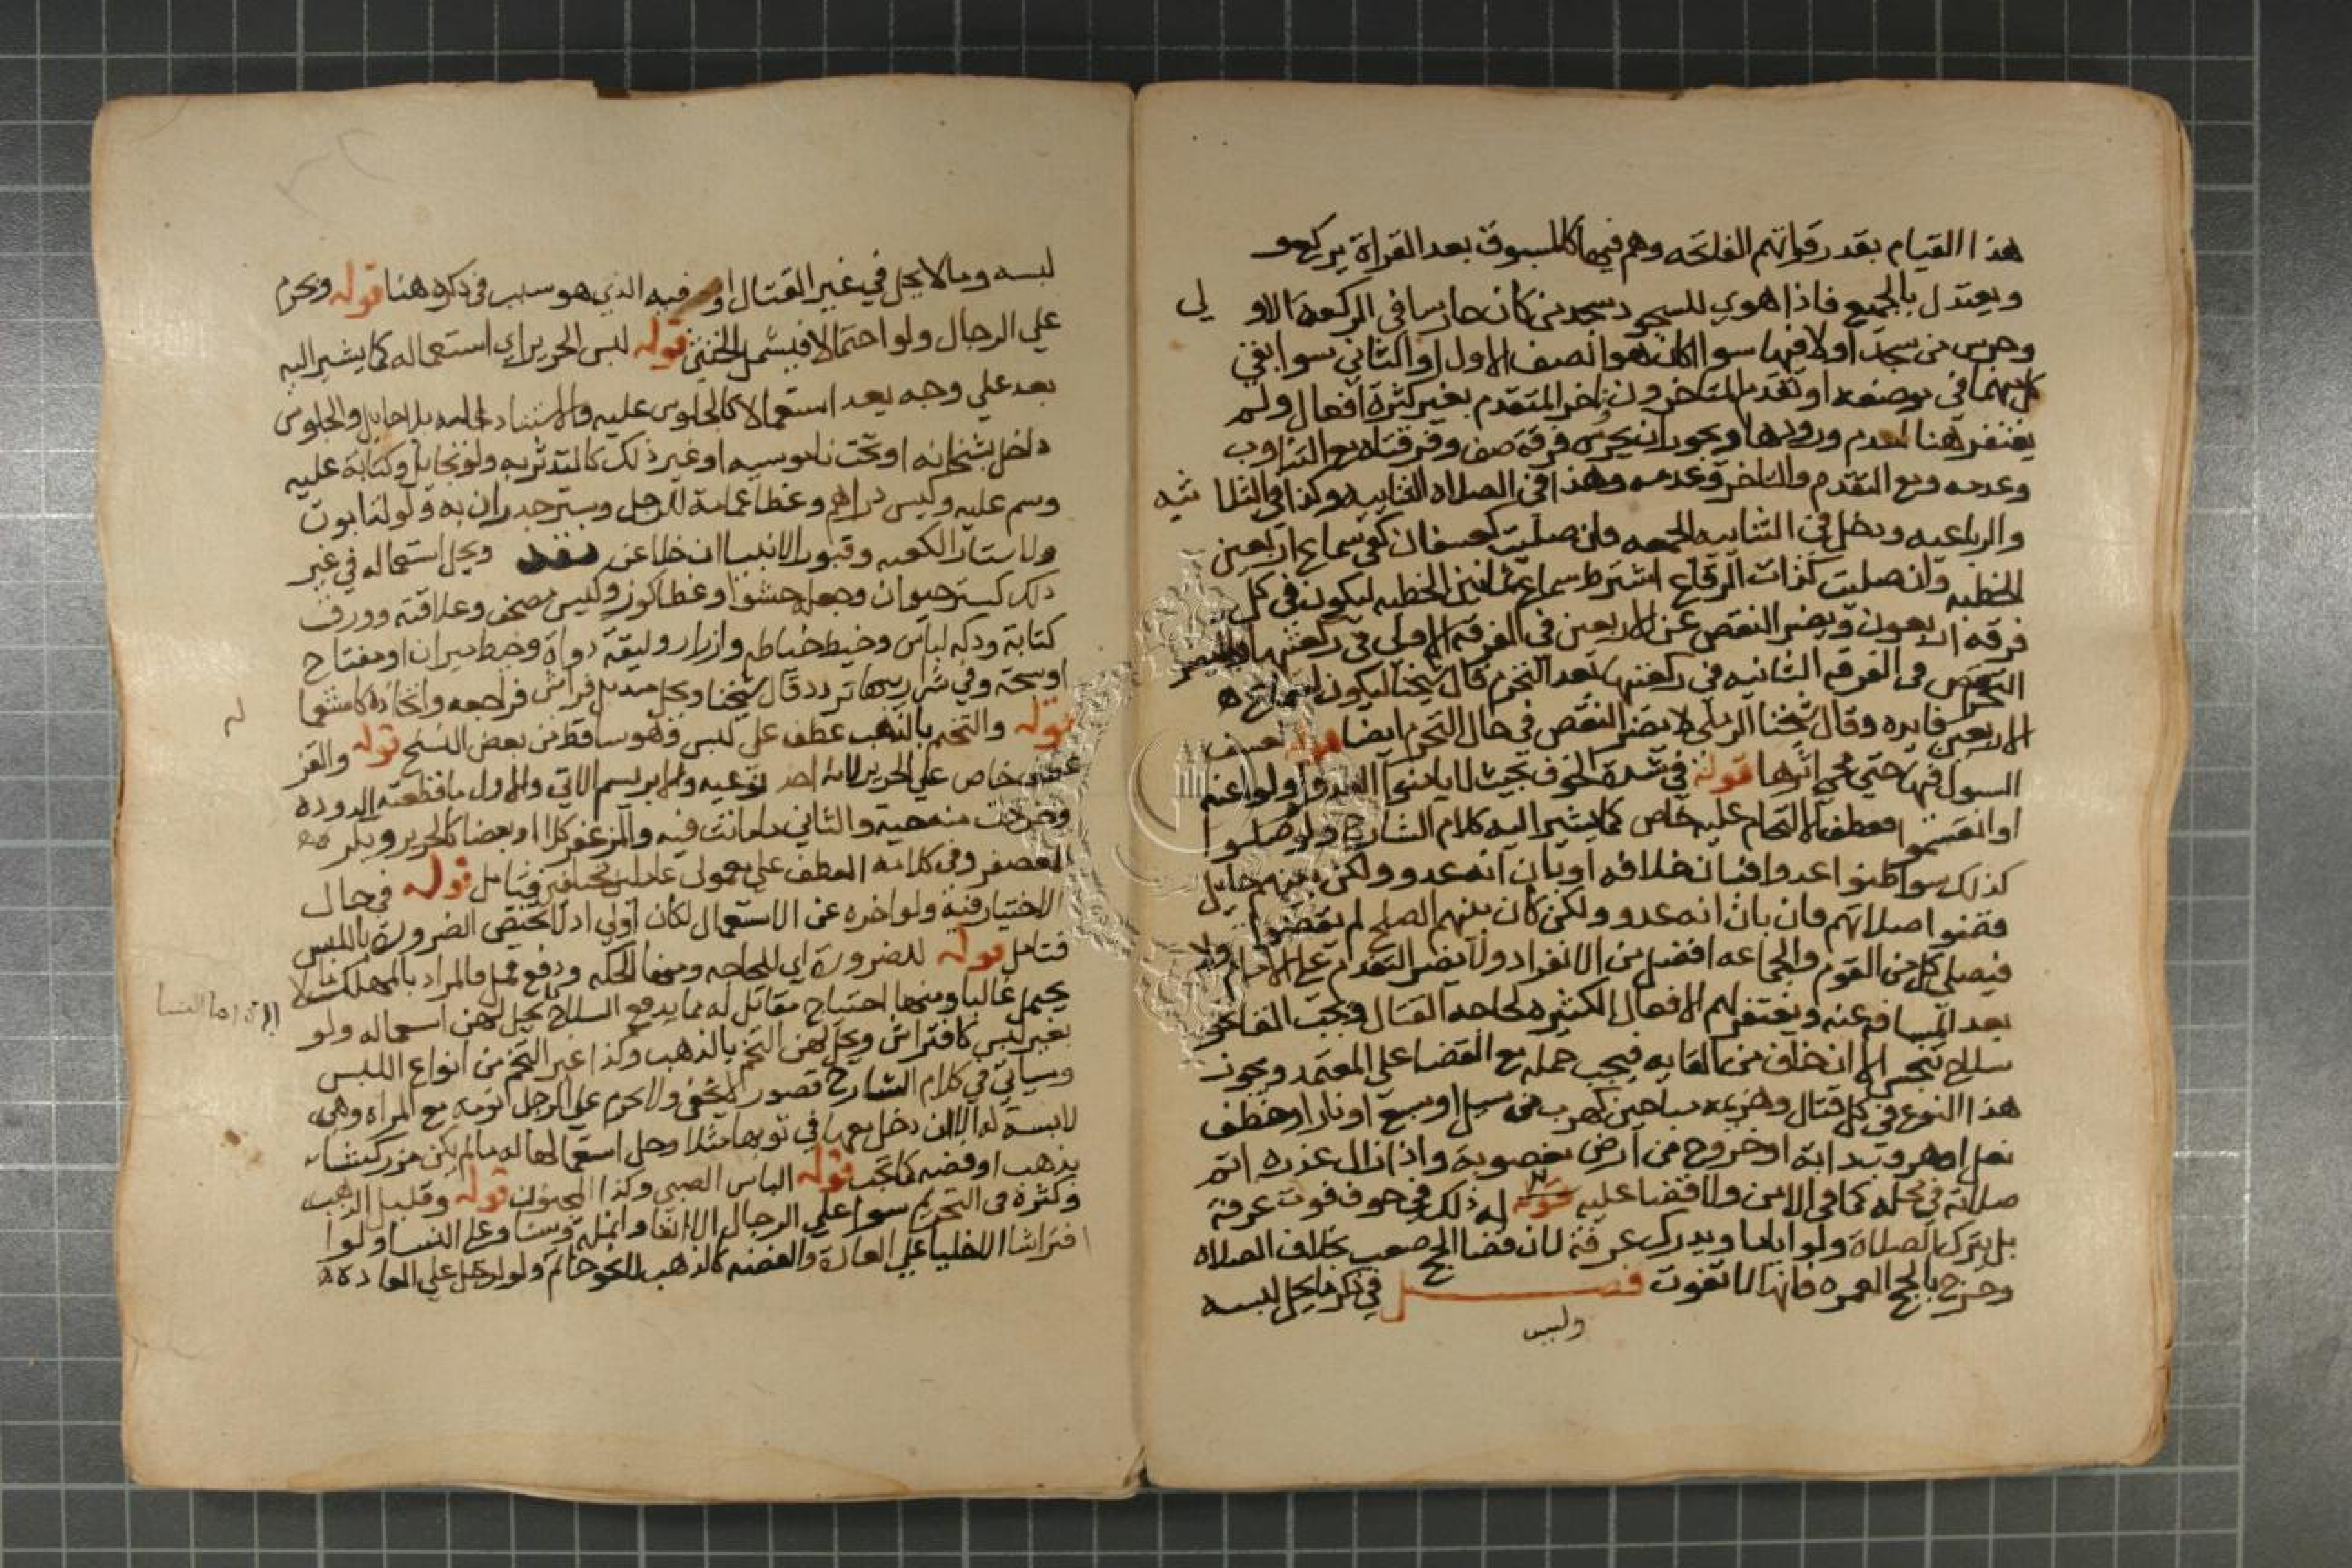 هذا القيام بقدر قراتهم الفاتحه وهم فيهما كالمسبوق بعد القراة يركع و
ويعتدل بالجميع فاذا هوي للسجود سجد من كان حارسا في الركعة الاو لي
وحرس من سجد اولا فيها سوا اكان هو الصف الاول او الثاني سوا بقي
كل منهما في موضعه او تقدم المتاخرون وتاخر المتقدم بغير كثرة افعال ولم
يغتفر هنا لعدم ورودها ويجوز ان يحرس فرقة صف وفرقتاه مع التناوب
وعدمه ومع التقدم والتاخر وعدمه وهذا في الصلاه الثنايه وكذا في الثلا ثيه
والرباعيه ودخل في الثنايه الجمعه فان صليت كعسفان كفي سماع اربعين
الخطبه وان صليت كذات الرقاع اشترط سماع ثمانين الخطبه ليكون في كل
فرقه اربعون ويضر النقص عن الاربعين في الفرقه الاولي في ركعتها ولا يضر
النقص في الفرقه الثانيه في ركعتها بعد التحرم قال شيخنا ليكون لسماع
الاربعين فايده وقال شيخنا الرملي لا يضر النقص في حال التحرم ايضا قوله لعسف
السيول فيها حتي محي اثرها قوله في شدة الخوف بحيث لا يامنوا العدو لو ولوا عنه
او انقسموا فعطف الالتحام عليه خاص كما يشير اليه كلام الشارح ولو صلوا
كذلك سواد ظنوا عدوا فبان خلافه او بان انه عدو ولكن بينهم حايل
قضوا صلاتهم فان بان انه عدو ولكن كان بينهم الصلح لم يقضوا
فيصلي كل من القوم والجماعه افضل من الانفراد ولا يضر التقدم علي الامام ولا
بعد المسافه عنه ويغتفر لهم الافعال الكثيره لحاجه القتال ويجب القا نحو
سلاح تنجس الا ان خاف من القايه فيجب حمله مع القضا علي المعتمد ويجوز
هذا النوع في كل قتال وهزيمه مباحين كهرب من سيل او سبع او نار او خطف
نعل او هروب دابة او خروج من ارض مغصوبة واذا زال عذره اتم
صلاته في محله كما في الامن ولا قضا عليه قوله له ذلك في خوف فوت عرفة
بل يترك الصلاة ولو اياما ويدرك عرفة لان قضا الحج صعب بخلاف الصلاه
وخرج بالحج العمره فانها لا تفوت فصل في ذكر ما يحل لبسه
ولبس
لبسه وما لا يحل في غير القتال او فيه الذي هو سبب في ذكره هنا قوله ويحرم
علي الرجال ولو احتمالا فيشمل الخنثي قوله لبس الحرير اي استعماله كما يشير اليه
بعد علي وجه يعد استعمالا كالجلوس عليه والاستناد عليه بلا حايل والجلوس
داخل بشخانه او تحت ناموسيه او غير ذلك كالتدثر به ولو بحايل وكتابة عليه
ورسم عليه وكيس دراهم وغطا عمامة للرجل وستر جدران به ولو لتابوت
ولا ستار الكعبه وقبور الانبيا ان خلا عن نقد ويحل استعماله في غير
ذلك كستر حيوان وجعله حشوا وغطا كوز وكيس مصحف وعلاقته وورق
كتابة ودكه لباس وخيط خياطه وازرار وليقة دواة وخيط ميزان او مفتاح
او سبحة وفي شراريبها تردد قال شيخنا ويحل منديل فراش فراجعه واتخاذه كاستعما له
قوله والتختم بالذهب عطف علي لبس وهو ساقط من بعض النسخ قوله والقز
عطف خاص علي الحرير لانه احد نوعيه والابريسم الاتي والاول ما قطعته الدوده
وخرجت منه حية والثاني ما ماتت فيه والمزعفر كلا او بعضا كالحرير ويكره
المعصفر وفي كلامه العطف علي معمولي عاملين مختلفين فتامل قوله في حال
الاختيار فيه ولو اخره عن الاستعمال لكان اولي اذ لا تختص الضرورة باللبس
فتامل قوله للضرورة اي للحاجه ومنها الحكه ودفع قمل فالمراد بالمهلك مالا
يحتمل غالبا ومنها احتياج مقاتل له مما يدفع السلاح يحل لهن استعماله ولو
بغير لبس كافتراش ويحل لهن التختم بالذهب وكذا غير التختم من انواع اللبس
وسياتي في كلام الشارح قصور لا يخفي ولا يحرم علي الرجل نومه مع المراة وهي
لابسة له الا ان دخل معها في ثوبها مثلا وحل استعمالها له ما لم يكن مزركشا
بذهب او فضه كما تحب قوله الباس الصبي وكذا المجنون قوله وقليل الذهب
وكثره في التحريم سوا علي الرجال الا انفا وانملة وسنا وعلي النسا ولو ا
افتراشا الا حليا علي العادة والفضه كالذهب الا نحو خاتم ولو لرجل علي العاده